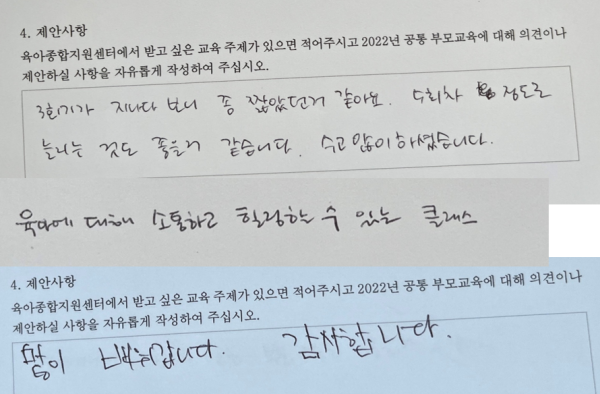 4. 제안사항
육아종합지원센터에서 받고 싶은 교육 주제가 있으면 적어주시고 2022년 공통 부모교육에 대해 의견이나
제안하실 사항을 자유롭게 작성하여 주십시오.
3회기가 지나다 보니 좀 짧았던거 같아요. 5회차 정도로
늘리는 것도 좋을거 같습니다. 수고 많이 하셨습니다.
육아에 대해 소통하고 힐링하는 수 있는 클래스
4. 제안사항
육아종합지원센터에서 받고 싶은 교육 주제가 있으면 적어주시고 2022년 공통 부모교육에 대해 의견이나
제안하실 사항을 자유롭게 작성하여 주십시오.
많이 배워갑니다. 감사합니다.